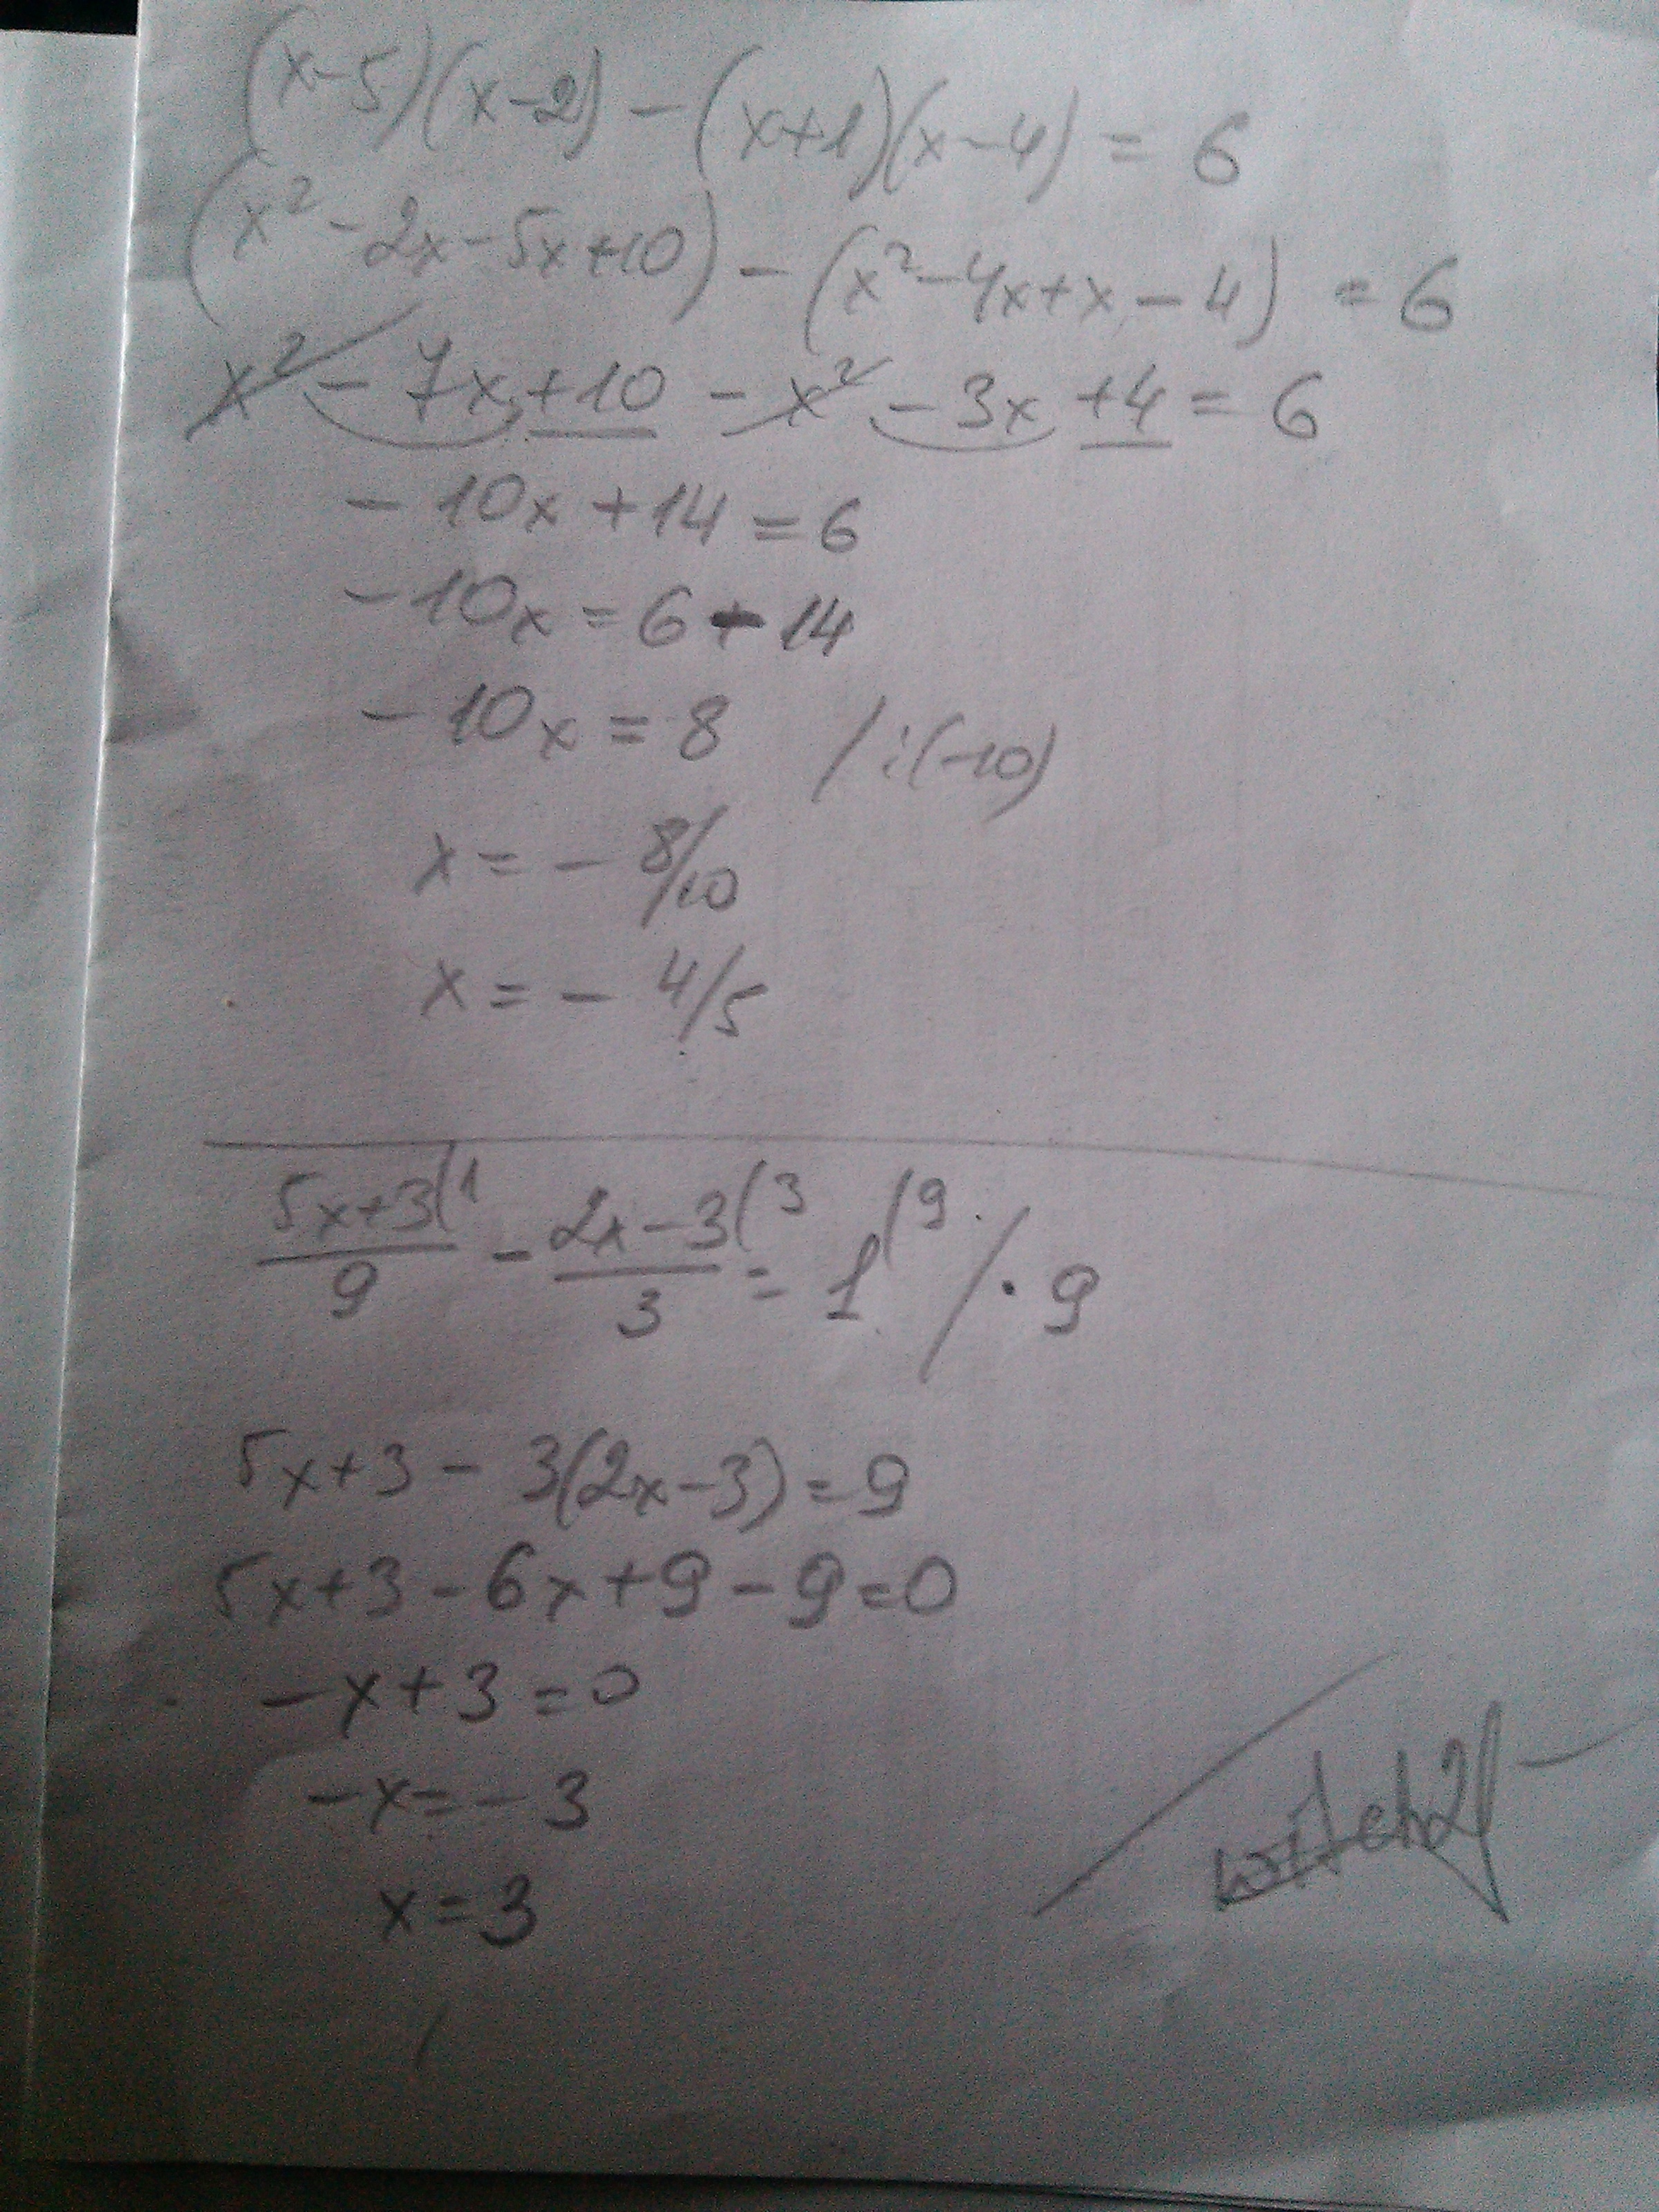 (x-5)(x-2) - (x+1)(x-4) = 6
(x²-2x-5x+10) - (x²-4x+x-4) = 6
x² - 7x+10 - x² - 3x +4 = 6
- 10x +14 = 6
-10x = 6 - 14
- 10x = 8 / :(-10)
x = - 8/10
x = - 4/5
5x+3(1 / 9 - 2x-3(3 / 3 = 1(9 / · 9
5x+3 - 3(2x-3) = 9
5x+3-6x+9-9=0
-x+3=0
-x=-3
x=3